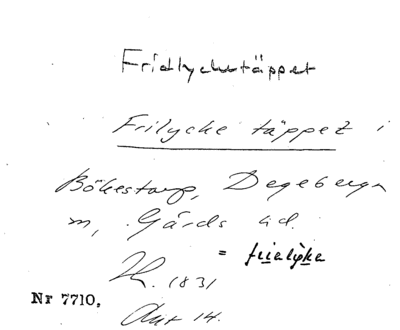 Fridlycketäppet
Frilycke täppet i
Bökestorp, Degeberga
sn, Gärds hd.
= frielÿke
Lh. 1831
Nr 7710,
Akt 14.